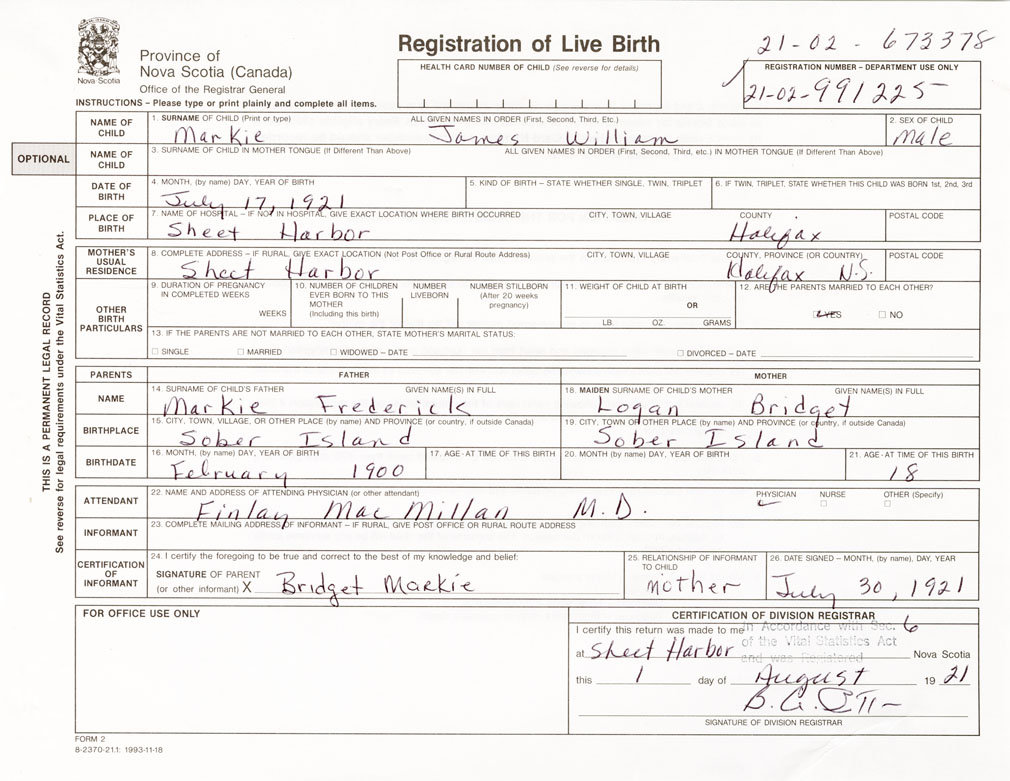 Registration of Live Birth
21-02-673378
Nova Scotia
Province of
Nova Scotia (Canada)
Office of the Registrar General
HEALTH CARD NUMBER OF CHILD (See reverse for details)
REGISTRATION NUMBER – DEPARTMENT USE ONLY
21-02-991225
INSTRUCTIONS – Please type or print plainly and complete all items.
NAME OF CHILD
1. SURNAME OF CHILD (Print or type) ALL GIVEN NAMES IN ORDER (First, Second, Third, Etc.) 2. SEX OF CHILD
Markie James William Male
OPTIONAL
NAME OF CHILD
3. SURNAME OF CHILD IN MOTHER TONGUE (If Different Than Above) ALL GIVEN NAMES IN ORDER (First, Second, Third, etc.) IN MOTHER TONGUE (If Different Than Above)
DATE OF BIRTH
4. MONTH, (by name) DAY, YEAR OF BIRTH 5. KIND OF BIRTH – STATE WHETHER SINGLE, TWIN, TRIPLET 6. IF TWIN, TRIPLET, STATE WHETHER THIS CHILD WAS BORN 1st, 2nd, 3rd
July 17, 1921
PLACE OF BIRTH
7. NAME OF HOSPITAL – IF NOT IN HOSPITAL, GIVE EXACT LOCATION WHERE BIRTH OCCURRED CITY, TOWN, VILLAGE COUNTY POSTAL CODE
Sheet Harbor Halifax
MOTHER'S USUAL RESIDENCE
8. COMPLETE ADDRESS – IF RURAL, GIVE EXACT LOCATION (Not Post Office or Rural Route Address) CITY, TOWN, VILLAGE COUNTY, PROVINCE (OR COUNTRY) POSTAL CODE
Sheet Harbor Halifax N.S.
OTHER BIRTH PARTICULARS
9. DURATION OF PREGNANCY IN COMPLETED WEEKS
WEEKS
10. NUMBER OF CHILDREN EVER BORN TO THIS MOTHER (Including this birth)
NUMBER LIVEBORN
NUMBER STILLBORN (After 20 weeks pregnancy)
11. WEIGHT OF CHILD AT BIRTH
OR
LB. OZ. GRAMS
12. ARE THE PARENTS MARRIED TO EACH OTHER?
YES NO
13. IF THE PARENTS ARE NOT MARRIED TO EACH OTHER, STATE MOTHER'S MARITAL STATUS:
SINGLE MARRIED WIDOWED – DATE DIVORCED – DATE
PARENTS FATHER MOTHER
NAME
14. SURNAME OF CHILD'S FATHER GIVEN NAME(S) IN FULL 18. MAIDEN SURNAME OF CHILD'S MOTHER GIVEN NAME(S) IN FULL
Markie Frederick Logan Bridget
BIRTHPLACE
15. CITY, TOWN, VILLAGE, OR OTHER PLACE (by name) AND PROVINCE (or country, if outside Canada) 19. CITY, TOWN OR OTHER PLACE (by name) AND PROVINCE (or country, if outside Canada)
Sober Island Sober Island
BIRTHDATE
16. MONTH, (by name) DAY, YEAR OF BIRTH 17. AGE - AT TIME OF THIS BIRTH 20. MONTH (by name) DAY, YEAR OF BIRTH 21. AGE - AT TIME OF THIS BIRTH
February 1900 18
ATTENDANT
22. NAME AND ADDRESS OF ATTENDING PHYSICIAN (or other attendant) PHYSICIAN NURSE OTHER (Specify)
Finlay MacMillan M.D.
INFORMANT
23. COMPLETE MAILING ADDRESS OF INFORMANT – IF RURAL, GIVE POST OFFICE OR RURAL ROUTE ADDRESS
CERTIFICATION OF INFORMANT
24. I certify the foregoing to be true and correct to the best of my knowledge and belief:
SIGNATURE OF PARENT
(or other informant) X Bridget Markie
25. RELATIONSHIP OF INFORMANT TO CHILD
mother
26. DATE SIGNED – MONTH, (by name), DAY, YEAR
July 30, 1921
THIS IS A PERMANENT LEGAL RECORD
See reverse for legal requirements under the Vital Statistics Act.
FOR OFFICE USE ONLY
CERTIFICATION OF DIVISION REGISTRAR
I certify this return was made to me In Accordance with Sec. 6
of the Vital Statistics Act
and was Registered
at Sheet Harbor Nova Scotia
this 1 day of August 19 21
SIGNATURE OF DIVISION REGISTRAR
FORM 2
8-2370-21.1: 1993-11-18